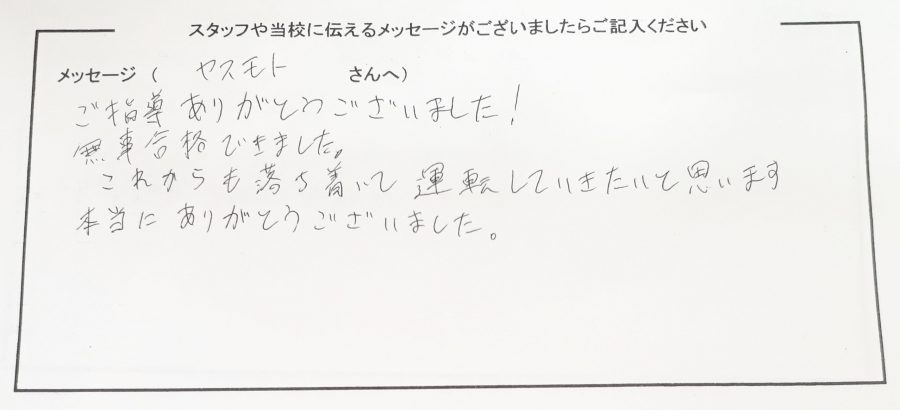 スタッフや当校に伝えるメッセージがございましたらご記入ください
メッセージ（ ヤスモト さんへ）
ご指導ありがとうございました！
無事合格できました。
これからも落ち着いて運転していきたいと思います
本当にありがとうございました。